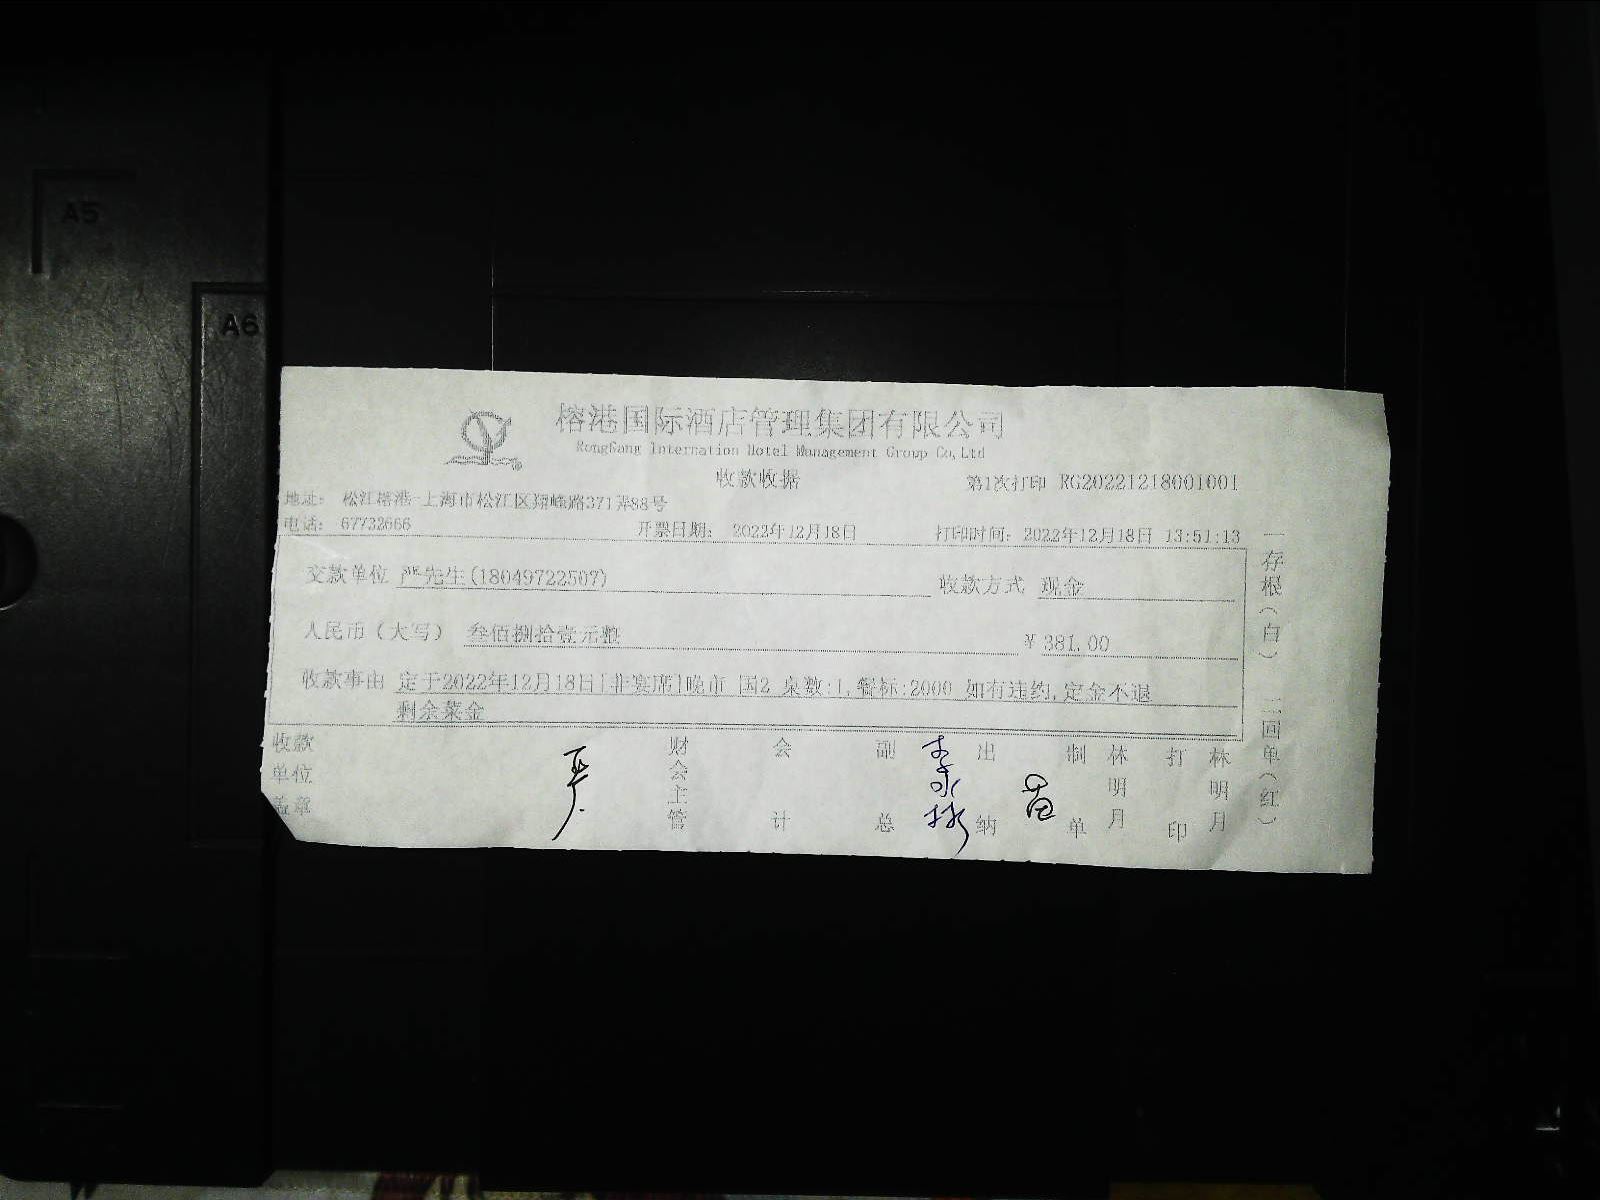 A5
A6
榕港国际酒店管理集团有限公司
RongGang Internation Hotel Management Group Co,Ltd
收款收据
第1次打印 RG20221218001001
地址： 松江榕港-上海市松江区翔峰路371弄88号
电话： 67732666 开票日期： 2022年12月18日 打印时间：2022年12月18日 13:51:13
交款单位 严先生(18049722507) 收款方式 现金
人民币（大写） 叁佰捌拾壹元整 ¥381.00
收款事由 定于2022年12月18日[非宴席]晚市 国2 桌数:1,餐标:2000 如有违约,定金不退
剩余菜金
收款单位盖章 严 财会主管 会计 副总 李 出纳 制单 林明月 打印 林明月
一存根（白） 二回单（红）